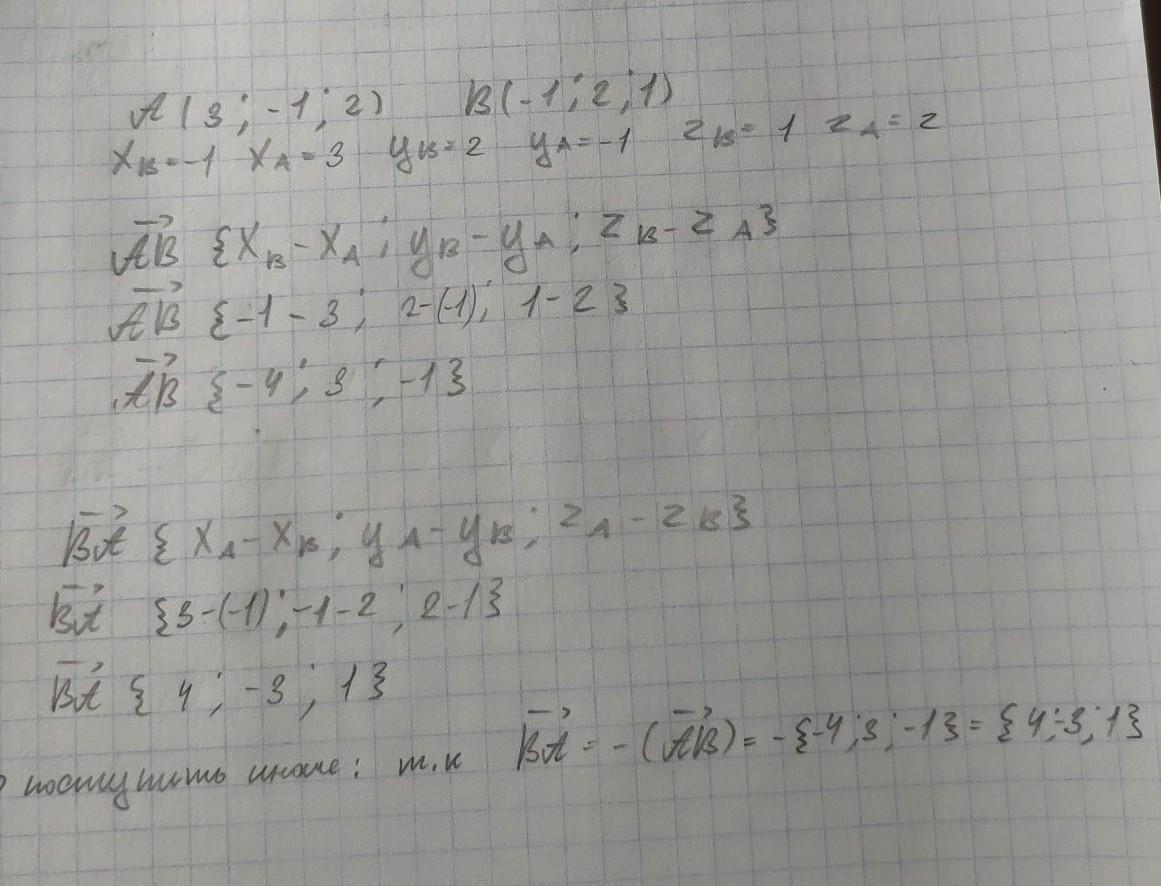 A(3; -1; 2) B(-1; 2; 1)
x_B=-1 x_A=3 y_B=2 y_A=-1 z_B=1 z_A=2
\overrightarrow{AB} {x_B-x_A; y_B-y_A; z_B-z_A}
\overrightarrow{AB} {-1-3; 2-(-1); 1-2}
\overrightarrow{AB} {-4; 3; -1}
\overrightarrow{BA} {x_A-x_B; y_A-y_B; z_A-z_B}
\overrightarrow{BA} {3-(-1); -1-2; 2-1}
\overrightarrow{BA} {4; -3; 1}
поступить иначе: т.к \overrightarrow{BA} = -(\overrightarrow{AB}) = -{-4; 3; -1} = {4; -3; 1}